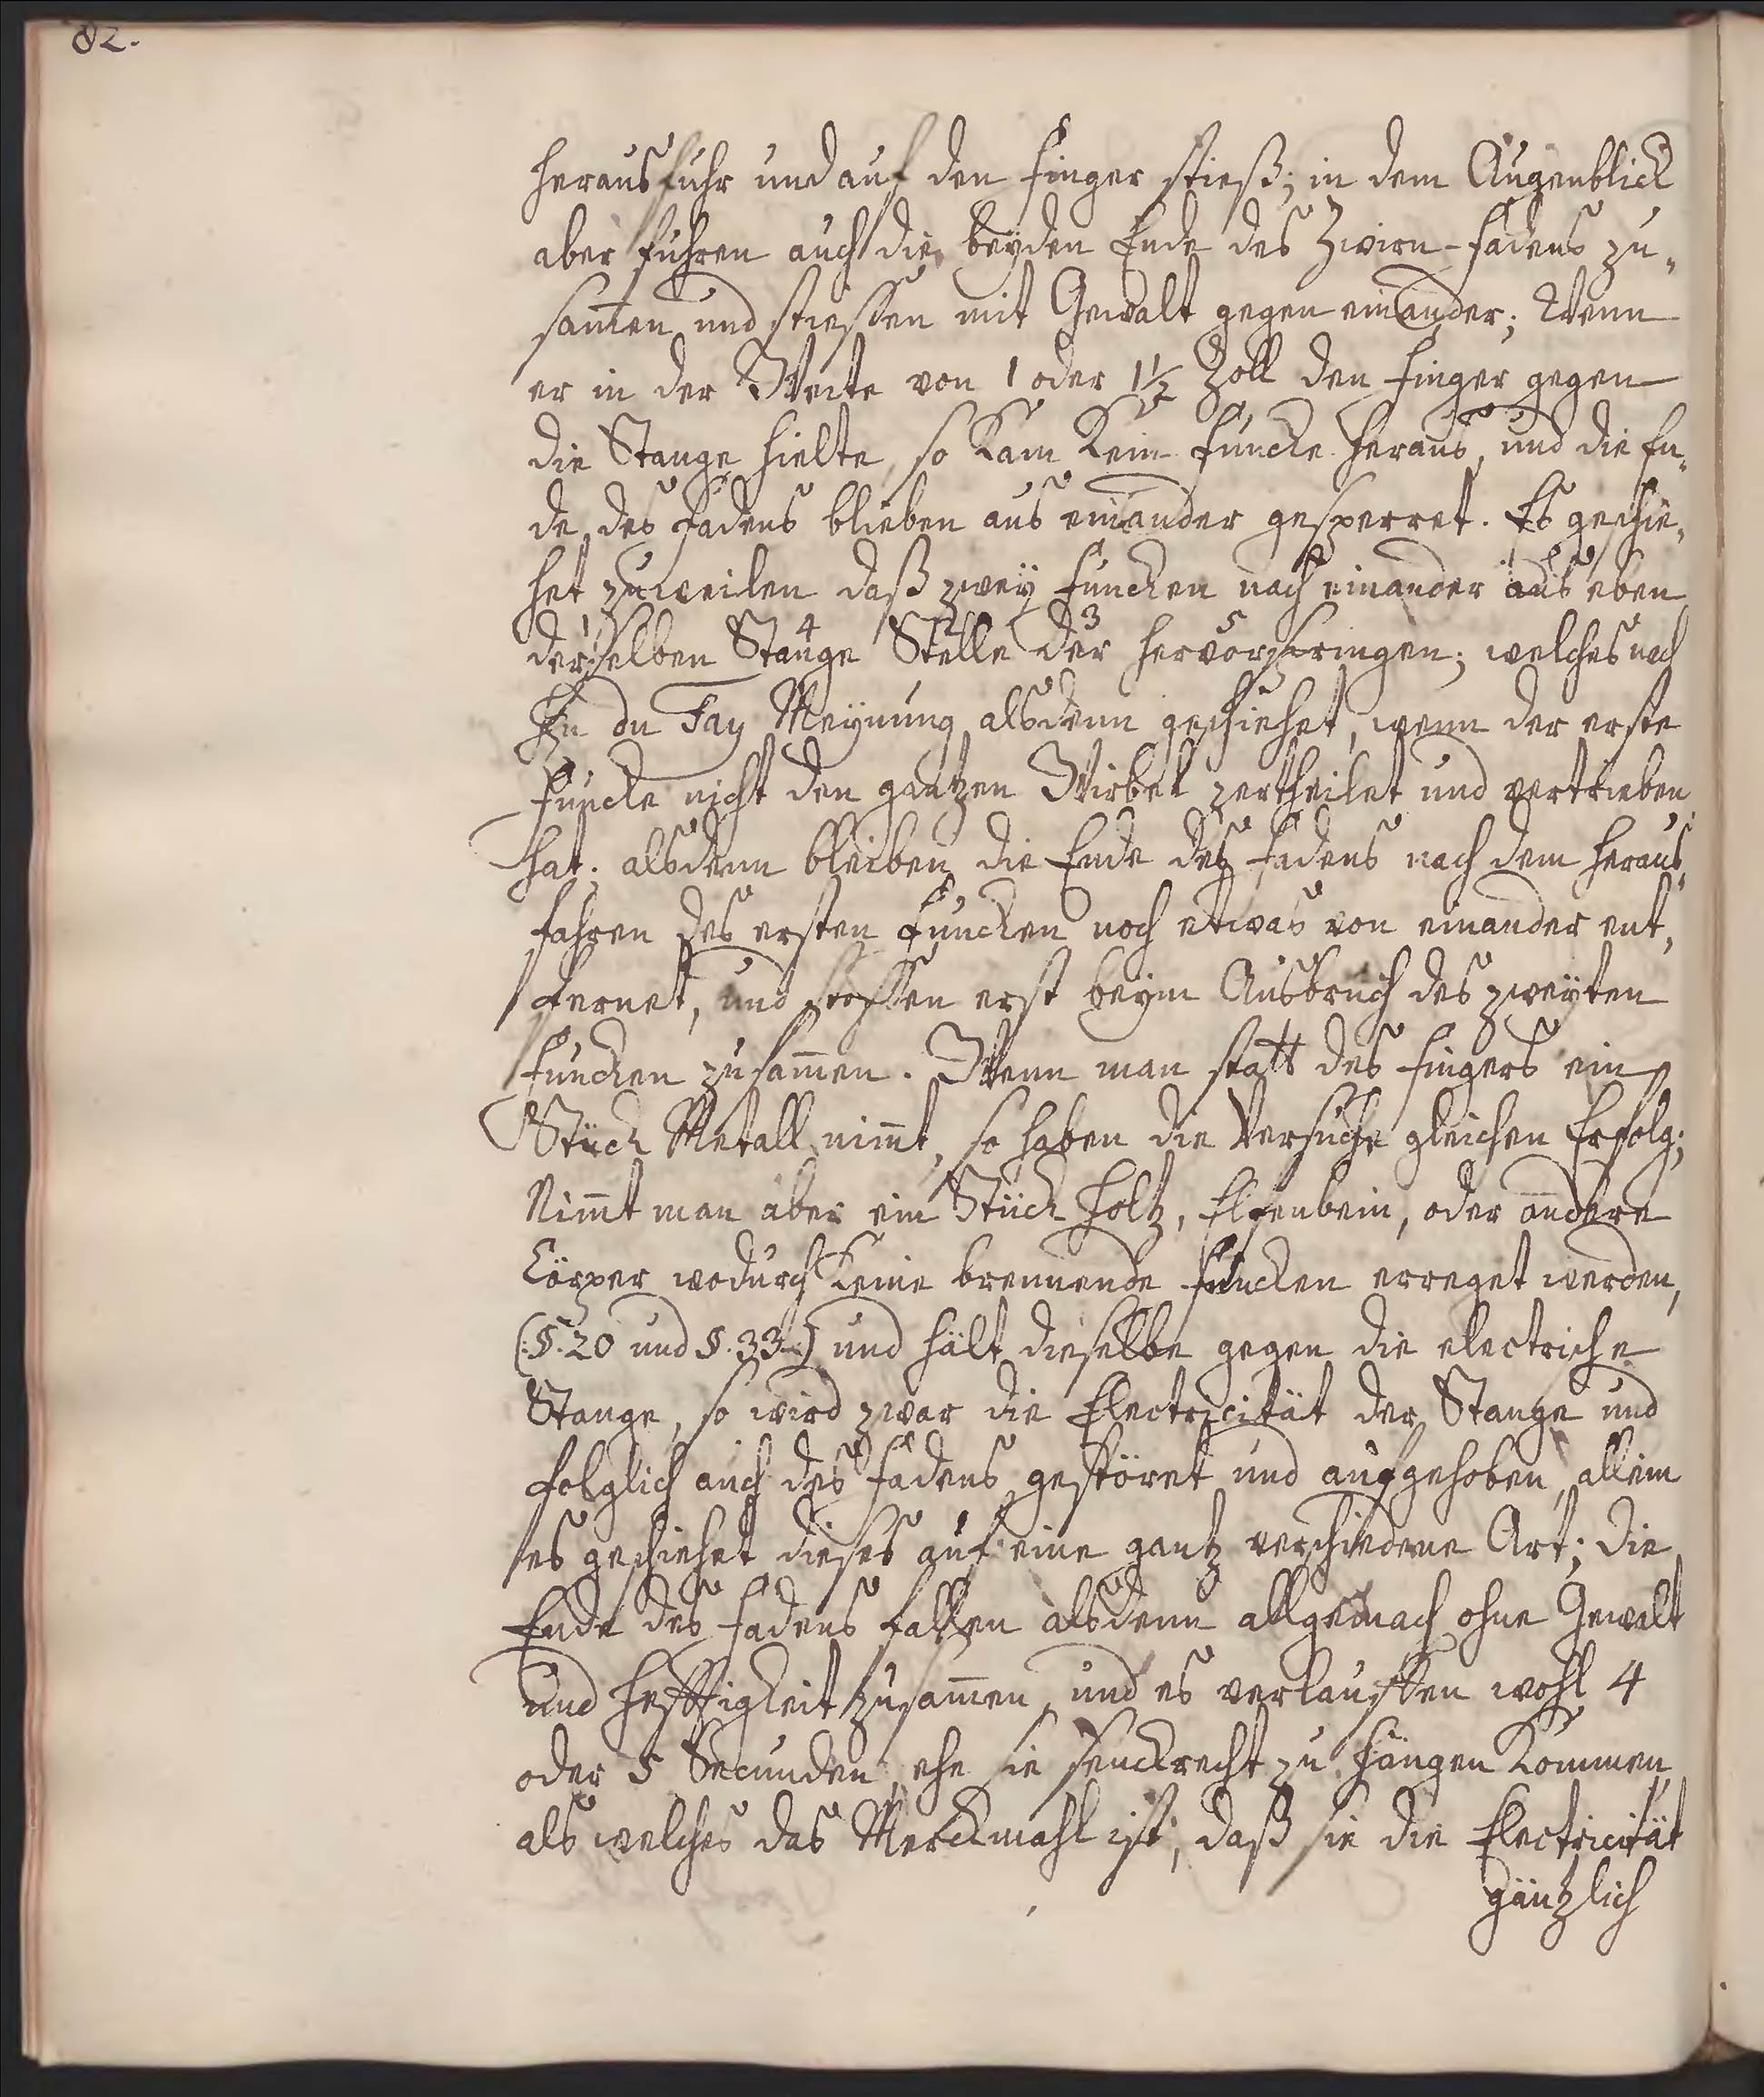 82.
herausfuhr und auf den Finger stieß; in dem Augenblick
aber fuhren auch die beyden Ende des Zwirn-Fadens zu„
sam̄en und stiessen mit Gewalt gegen einander; Wenn
er in der Weite von 1 oder 1½ Zoll den Finger gegen
die Stange hielte, so kam kein Funcke heraus, und die En„
de des Fadens blieben aus einander gesperret. Es geschie„
het zuweilen daß zwey Funcken nach einander aus eben
1 4 2 3 5
derselben Stange Stelle der hervorspringen; welches nach
Hn du Fay Meynung alsdenn geschiehet, wenn der erste
Funcke nicht den gantzen Wirbel zertheilet und vertrieben
hat; alsdenn bleiben die Ende des Fadens nach dem heraus„
fahren des ersten Funcken noch etwas von einander ent„
fernet, und stossen erst beym Ausbruch des zweyten
Funcken zusam̄en. Wenn man statt des Fingers ein
Stück Metall nim̄t, so haben die Versuche gleichen Erfolg;
Nim̄t man aber ein Stück Holtz, Elfenbein, oder andere
Cörper wodurch keine brennende Funcken erreget werden,
(:§. 20 und §. 33:) und hält dieselbe gegen die electrische
Stange, so wird zwar die Electricität der Stange und
folglich auch des Fadens gestöret und aufgehoben, allein
es geschiehet dieses auf eine gantz verschiedene Art; die
Ende des Fadens fallen alsdenn allgemach ohne Gewalt
und Hefftigkeit zusam̄en, und es verlauffen wohl 4
oder 5 Secunden, ehe sie senckrecht zu hängen kommen,
als welches das Merckmahl ist, daß sie die Electricität
gäntzlich